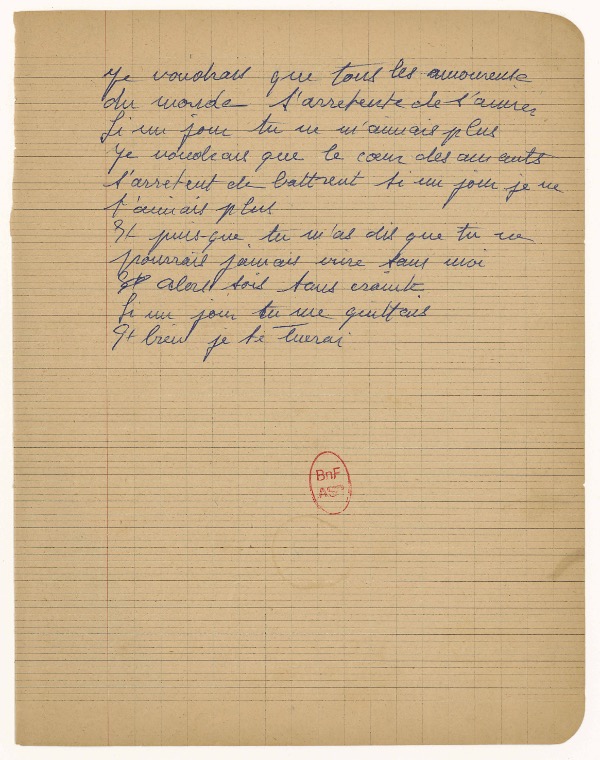 Je voudrais que tous les amoureux
du monde s'arretente de s'aimer
Si un jour tu ne m'aimais plus
Je voudrais que le cœur des amants
s'arretent de battrent si un jour je ne
t'aimais plus
Et puisque tu m'as dis que tu ne
pourrais jamais vivre sans moi
alors sois sans crainte
Si un jour tu me quittais
Et bien je te tuerai
BnF
ASP